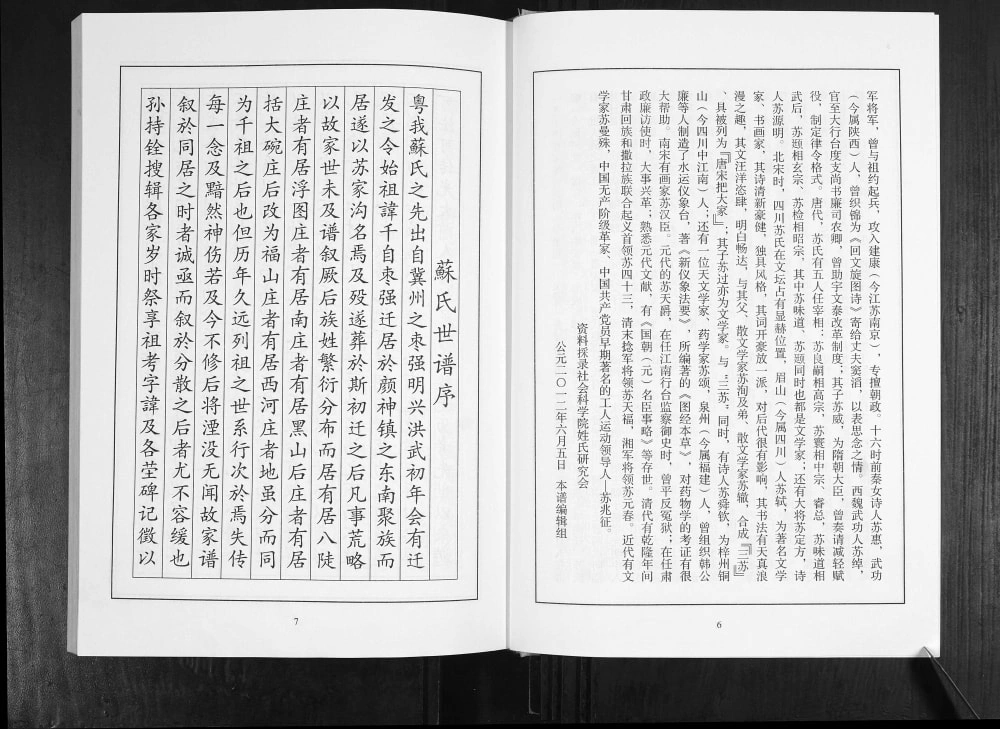 军将军，曾与祖约起兵，攻入建康（今江苏南京），专擅朝政。十六时前秦女诗人苏惠，武功
（今属陕西）人，曾织锦为《回文旋图诗》寄给丈夫窦滔，以表思念之情。西魏武功人苏绰，
官至大行台度支尚书廉司农卿，曾助宇文泰改革制度；其子苏威，为隋朝大臣，曾奏请减轻赋
役，制定律令格式。唐代，苏氏有五人任宰相：苏良嗣相高宗，苏瓌相中宗、睿总，苏味道相
武后，苏颋相玄宗、苏检相昭宗，其中苏味道、苏颋同时也都是文学家；还有大将苏定方，诗
人苏源明。北宋时，四川苏氏在文坛占有显赫位置，眉山（今属四川）人苏轼，为著名文学
家、书画家，其诗清新豪健，独具风格，其词开豪放一派，对后代很有影响，其书法有天真浪
漫之趣，其文汪洋恣肆，明白畅达，与其父、散文学家苏洵及弟、散文学家苏辙，合成『三苏』
、具被列为『唐宋把大家』；其子苏过亦为文学家。与“三苏”同时，有诗人苏舜钦，为梓州铜
山（今四川中江南）人；还有一位天文学家、药学家苏颂，泉州（今属福建）人，曾组织韩公
廉等人制造了水运仪象台，著《新仪象法要》，所编著的《图经本草》，对药物学的考证有很
大帮助。南宋有画家苏汉臣。元代的苏天爵，在任江南行台监察御史时，曾平反冤狱；在任肃
政廉访使时，大事兴革；熟悉元代文献，有《国朝（元）名臣事略》等存世。清代有乾隆年间
甘肃回族和撒拉族联合起义首领苏四十三，清末捻军将领苏天福，湘军将领苏元春。近代有文
学家苏曼殊，中国无产阶级革家、中国共产党员早期著名的工人运动领导人—苏兆征。
资料採录社会科学院姓氏研究会
公元二〇一二年六月五日 本谱编辑组
6
蘇氏世谱序
粤我蘇氏之先出自冀州之枣强明兴洪武初年会有迁
发之令始祖諱千自枣强迁居於颜神镇之东南聚族而
居遂以苏家沟名焉及殁遂葬於斯初迁之后凡事荒略
以故家世未及谱叙厥后族姓繁衍分布而居有居八陡
庄者有居浮图庄者有居南庄者有居黑山后庄者有居
括大碗庄后改为福山庄者有居西河庄者地虽分而同
为千祖之后也但历年久远列祖之世系行次於焉失传
每一念及黯然神伤若及今不修后将湮没无闻故家谱
叙於同居之时者诚亟而叙於分散之后者尤不容缓也
孙持铨搜辑各家岁时祭享祖考字諱及各茔碑记徵以
7